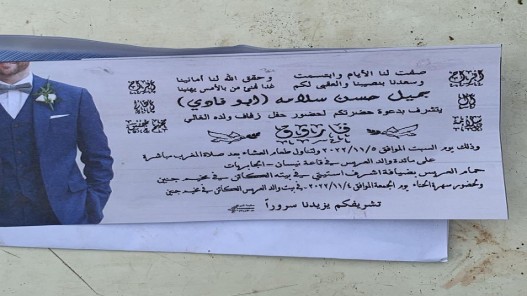 صفت لنا الأيام وابتسمت وحقق الله لنا أمانينا
وسعدنا بنصيبنا والعقبى لكم غدا فتى من بالأمس يهنينا
جميل حسن سلامه (ابو فادي)
يتشرف بدعوة حضرتكم لحضور حفل زفاف ولده الغالي
وذلك يوم السبت الموافق ٢٠٢٢/١١/٥ ولتناول طعام العشاء بعد صلاة المغرب مباشرة
على مائدة والد العريس في قاعة نيسان - الجابريات
حمام العريس بضيافة اشرف في بيته الكائن في مخيم جنين
ولحضور سهرة الحناء يوم الجمعة الموافق ٢٠٢٢/١١/٤ في بيت والد العريس الكائن في مخيم جنين
تشريفكم يزيدنا سروراً